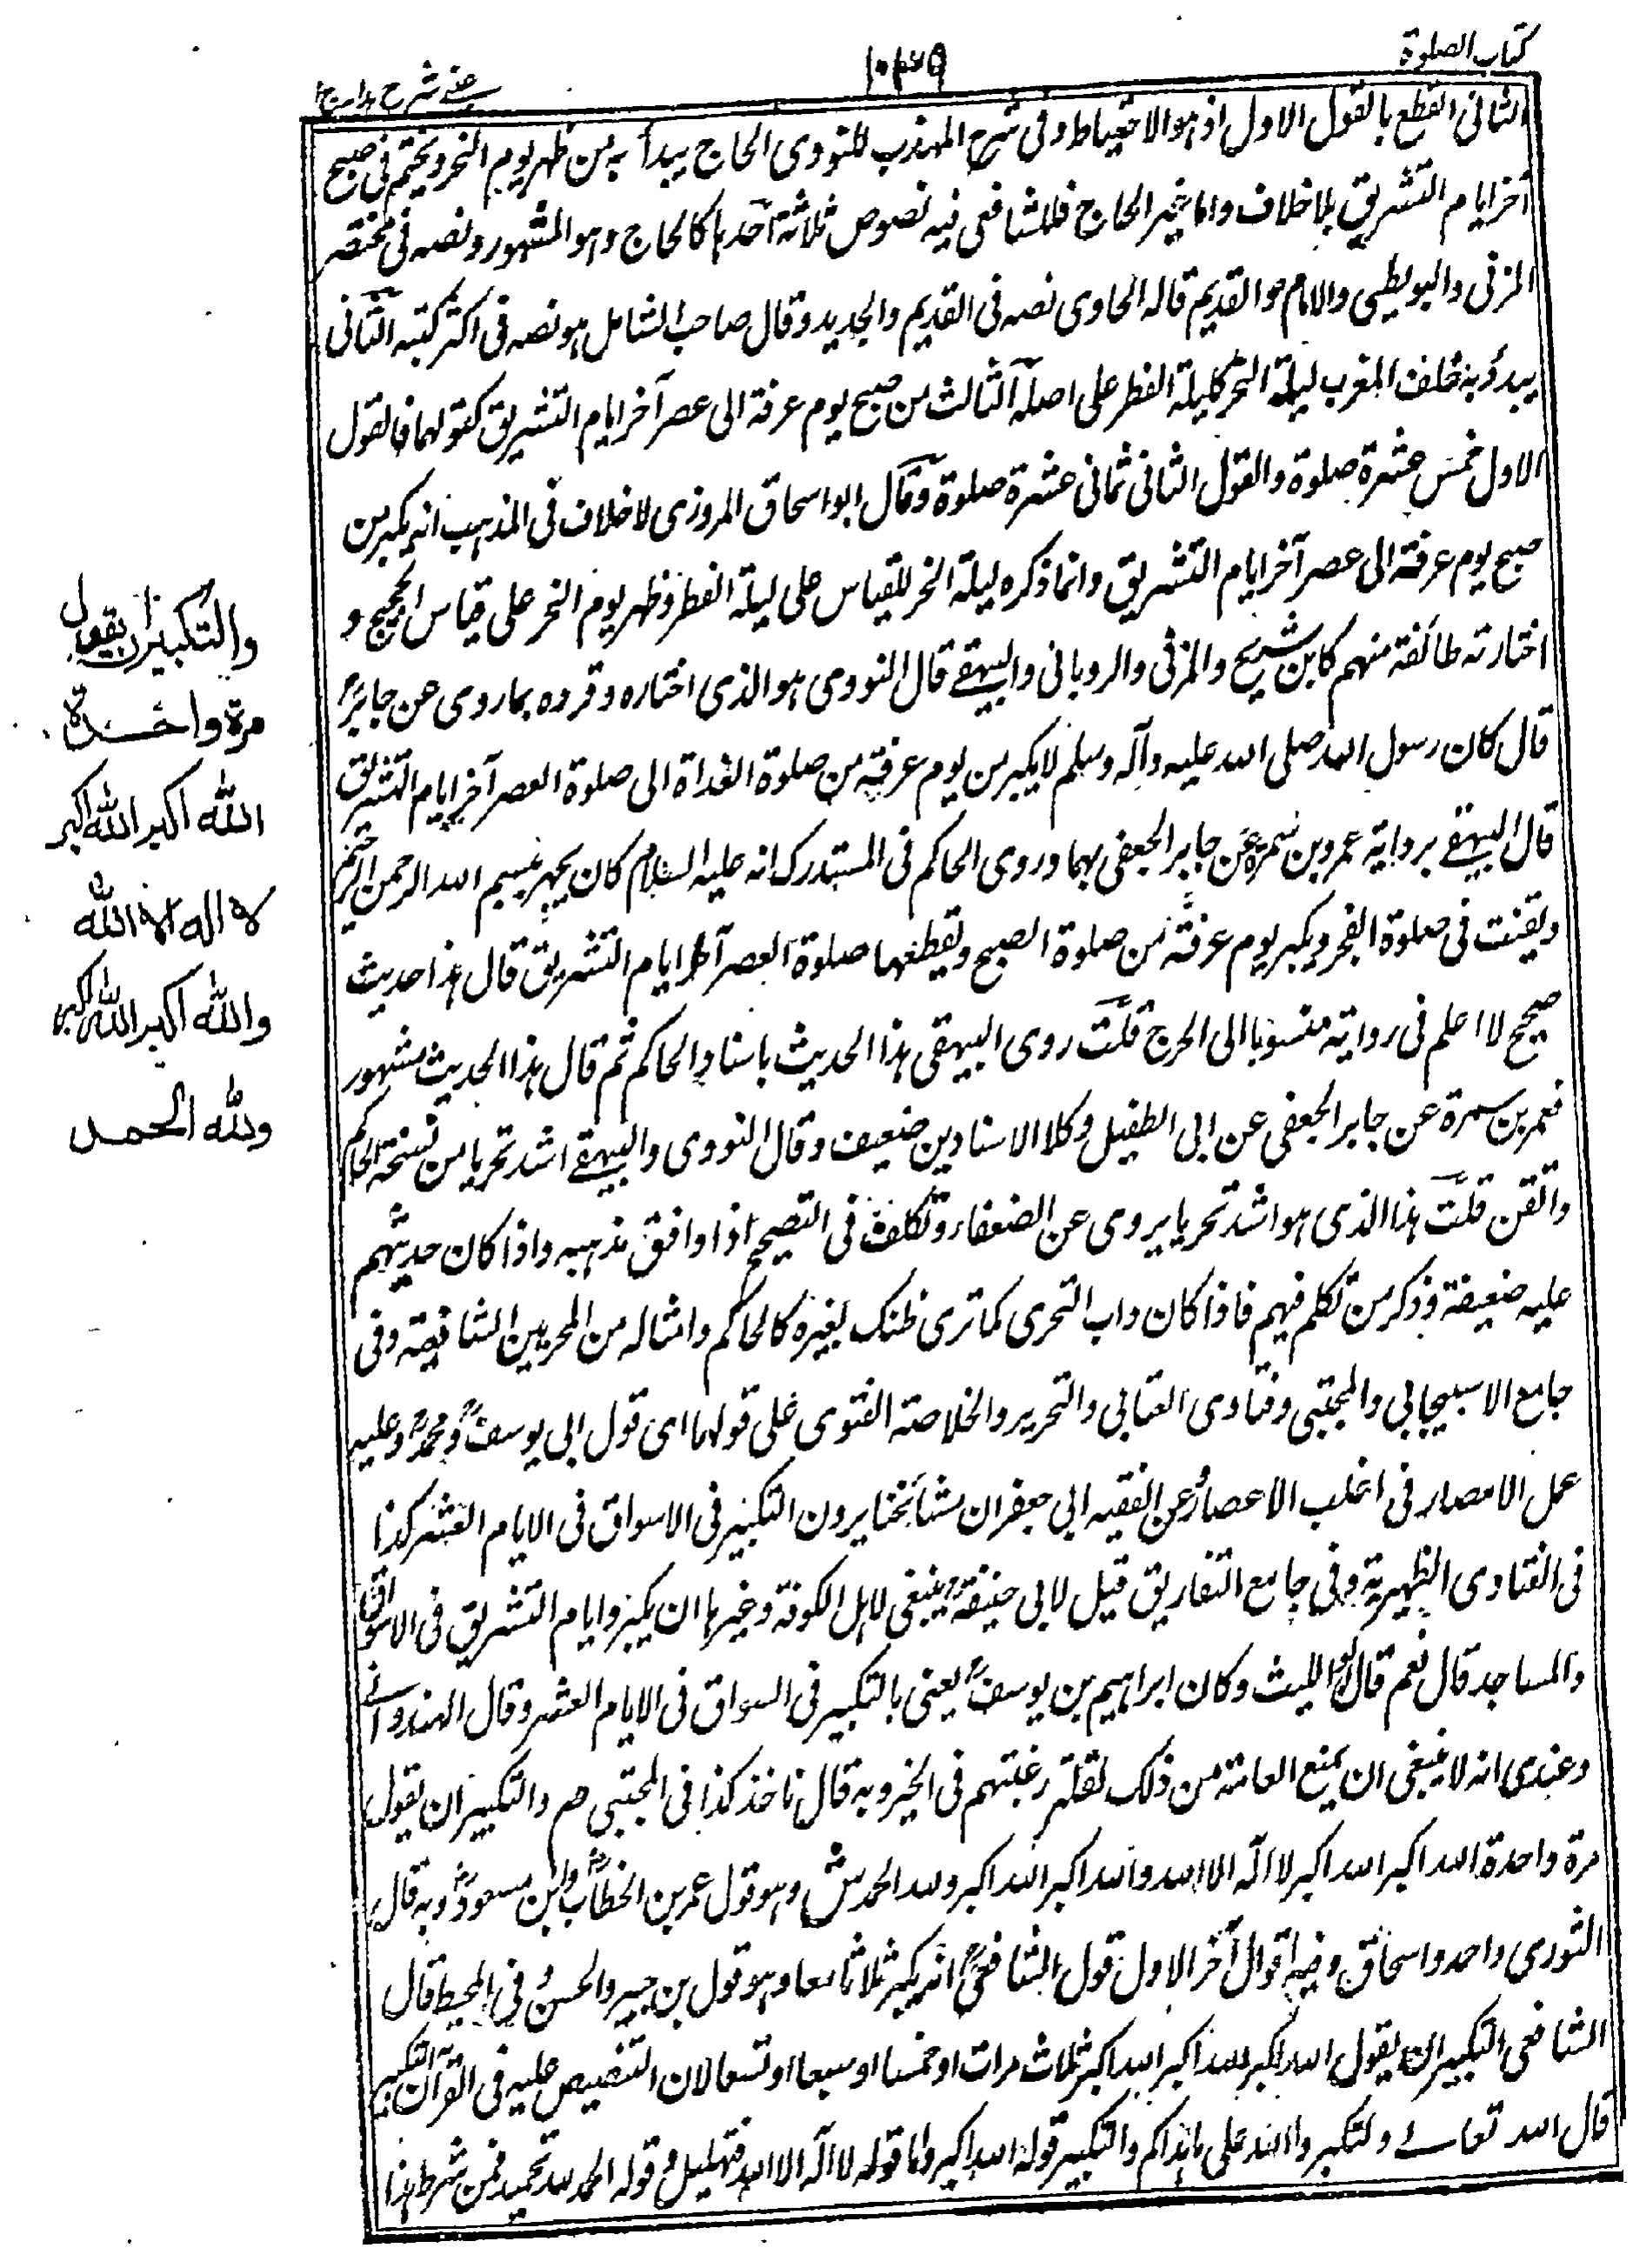 كتاب الصلوة
١٠٣٥
عينى شرح هداية ج ١
الثانى القطع بالقول الاول اذ هو الاحتياط وفى شرح المهذب للنووى الحاج يبدأ به من ظهر يوم النحر ويختم فى صبح
آخر ايام التشريق بلا خلاف واما غير الحاج فللشافعى فيه نصوص ثلاثة احدها كالحاج وهو المشهور ونصه فى مختصر
المزنى والبويطى والامام هو القديم قاله الحاوى نصه فى القديم والجديد وقال صاحب الشامل هو نصه فى اكثر كتبه الثانى
يبدؤ به خلف المغرب ليلة النحر كليلة الفطر على اصله الثالث من صبح يوم عرفة الى عصر آخر ايام التشريق كقولهما فالقول
الاول خمس عشرة صلوة والقول الثانى ثمانى عشرة صلوة وقال ابو اسحاق المروزى لا خلاف فى المذهب انه يكبر من
صبح يوم عرفة الى عصر آخر ايام التشريق وانما ذكره ليلة النحر للقياس على ليلة الفطر وظهر يوم النحر على قياس الحجيج و
اختارته طائفة منهم كابن شريح والمزنى والرويانى والبيهقے قال النووى هو الذى اختاره وقروه بما روى عن جابرؓ
قال كان رسول الله صلى الله عليه وآله وسلم لا يكبر من يوم عرفة من صلوة الغداة الى صلوة العصر آخر ايام التشريق
قال البيهقے برواية عمرو بن سمرة عن جابر الجعفى بهما وروى الحاكم فى المستدرك انه عليه السلام كان يجهر ببسم الله الرحمن الرحيم
ويقنت فى صلوة الفجر ويكبر يوم عرفة من صلوة الصبح ويقطعها صلوة العصر آخر ايام التشريق قال هذا حديث
صحيح لا اعلم فى رواية منسوبا الى الحرج قلت روى البيهقى هذا الحديث باسناد الحاكم ثم قال هذا الحديث مشهور
فعمر بن سمرة عن جابر الجعفى عن ابى الطفيل وكلا الاسنادين ضعيف وقال النووى والبيهقے اشد تحريا من نسخة الحاكم
واتقن قلت هذا الذى هو اشد تحريا يروى عن الضعفاء وتكلف فى التصحيح اذا وافق مذهبه واذا كان حديثهم
عليه ضعيفة وذكر من تكلم فيهم فاذا كان داب التحرى كما ترى ظنك بغيره كالحاكم وامثاله من المحريين الشافعية وفى
جامع الاسبيجابى والمجتبى وفتاوى العتابى والتحرير والخلاصة الفتوى على قولهما اى قول ابى يوسفؒ ومحمدؒ وعليه
عمل الامصار فى اغلب الاعصار وعن الفقيه ابى جعفر ان مشائخنا يرون التكبير فى الاسواق فى الايام العشر كذا
فى الفتاوى الظهيرية وفى جامع التفاريق قيل لابى حنيفةؒ ينبغى لاهل الكوفة وغيرها ان يكبروا ايام التشريق فى الاسواق
والمساجد قال نعم قال ابو الليث وكان ابراهيم بن يوسفؒ يعنى بالتكبير فى السواق فى الايام العشر وقال الهندوانے
وعندى انه لا ينبغى ان يمنع العامة من ذلك لقلة رغبتهم فى الخير وبه قال ناخذ كذا فى المجتبى هم والتكبير ان يقول
مرة واحدة الله اكبر الله اكبر لا اله الا الله والله اكبر الله اكبر ولله الحمد ش وهو قول عمر بن الخطابؓ وابن مسعودؓ وبه قال
الثورى واحمد واسحاق وفيه اقوال آخر الاول قول الشافعىؒ انه يكبر ثلاثا معا وهو قول بن جبير والحسن وفى المحيط قال
الشافعى التكبير ان يقول الله اكبر الله اكبر الله اكبر ثلاث مرات او خمسا او سبعا او تسعا لان التنصيص عليه فى القرآن التكبير
قال الله تعالے ولتكبروا الله على ما هداكم والتكبير قوله الله اكبر واما قوله لا اله الا الله فتهليل وقوله الحمد لله تحميد فمن شرط هذا
والتكبير ان يقول
مرة واحدة
الله اكبر الله اكبر
لا اله الا الله
والله اكبر الله اكبر
ولله الحمد